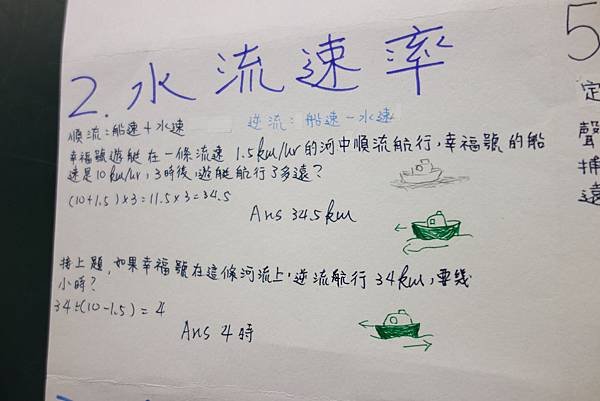 2. 水流速率
順流：船速＋水速
逆流：船速－水速
幸福號遊艇在一條流速 1.5km/hr的河中順流航行，幸福號的船
速是10km/hr，3時後，遊艇航行了多遠？
(10+1.5)×3=11.5×3=34.5
Ans 34.5km
接上題，如果幸福號在這條河流上，逆流航行 34km，要幾
小時？
34÷(10-1.5)=4
Ans 4時
5
定
聲
捕
遠